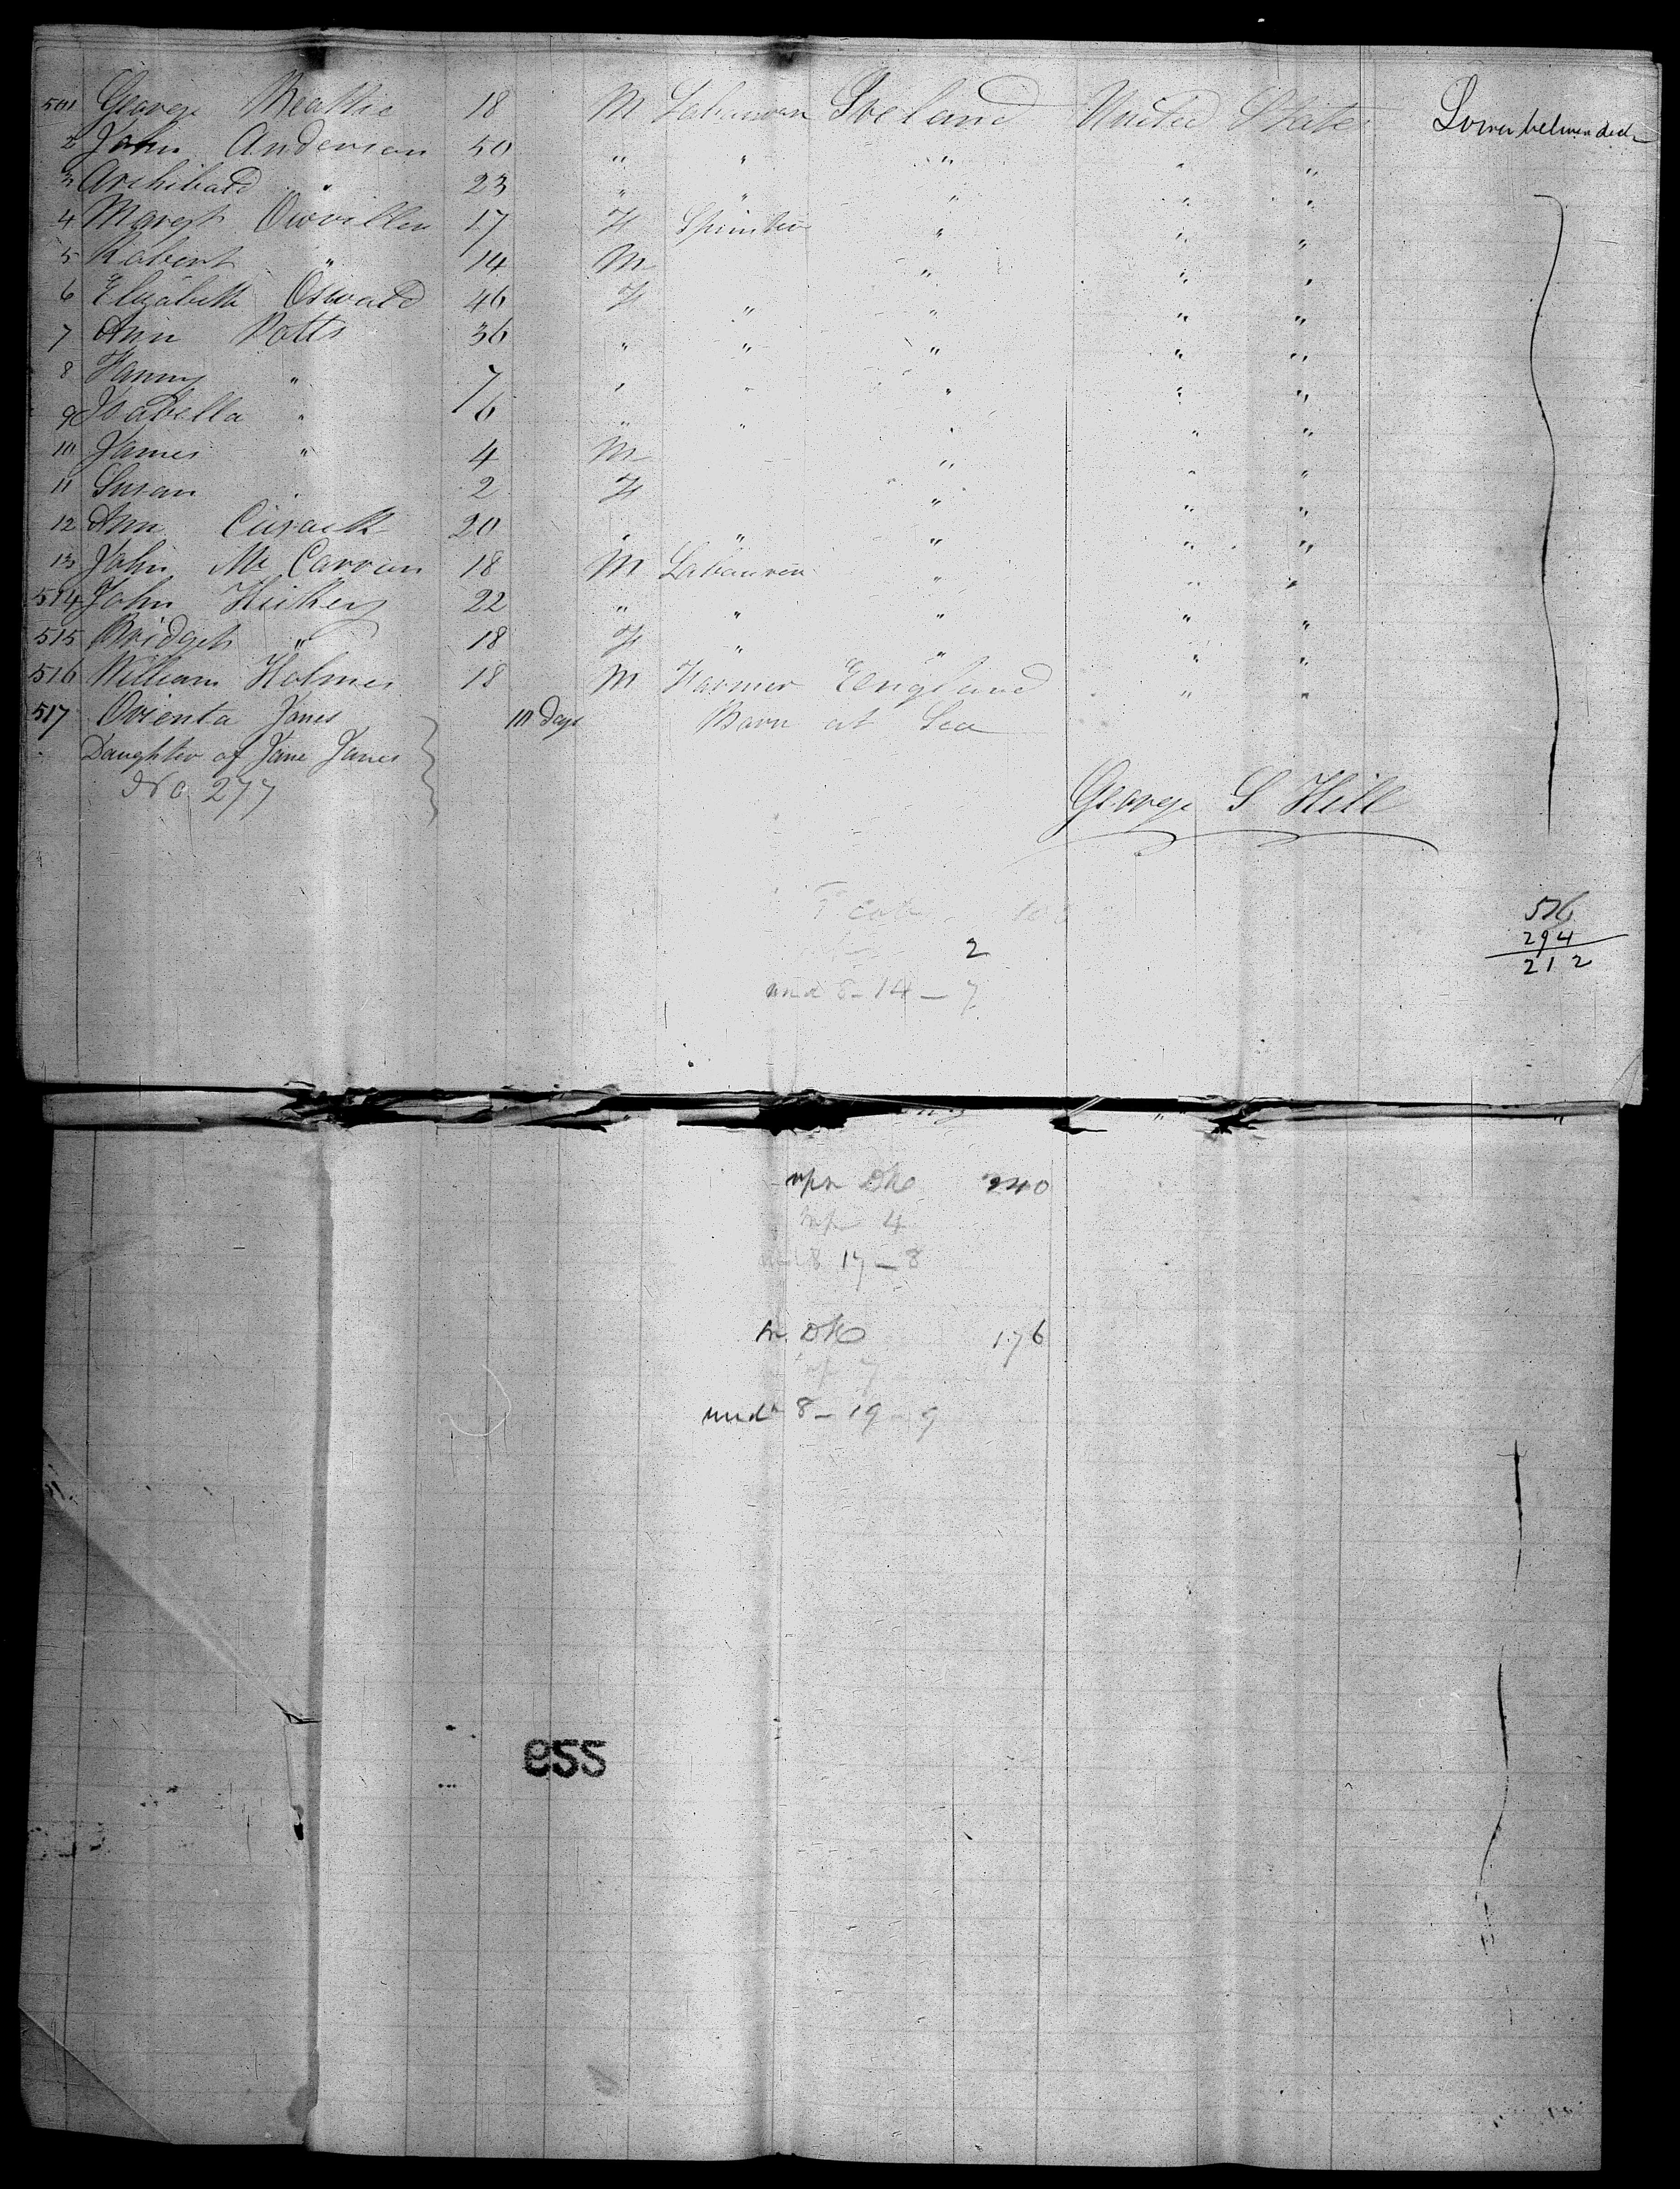 501 George Beattie 18 M Labourer Ireland United States Lower between deck
2 John Anderson 50 " " " " "
3 Archibald " 23 " " " " "
4 Margt 17 F Spinster " " "
5 Robert " 14 M " " "
6 Elizabeth Oswald 46 F " " " "
7 Ann Potts 36 " " " " "
8 Fanny " 7 " " " " "
9 Isabella " 6 " " " " "
10 James " 4 M " " "
11 Susan " 2 F " " "
12 Ann Cusack 20 " " " " "
13 John Mc Carron 18 M Labourer " " "
514 John Hickey 22 " " " " "
515 Bridget " 18 F " " " "
516 William Holmes 18 M Farmer England " "
517 Orienta Jones 10 days Born at Sea
Daughter of Jane Jones
No 277
George S Hill
506
294
212
2
und 8 - 14 - 7
upr Dk 240
inf 4
und 8 17 - 8
Dk 176
inf 7
undr 8 - 19 - 9
922